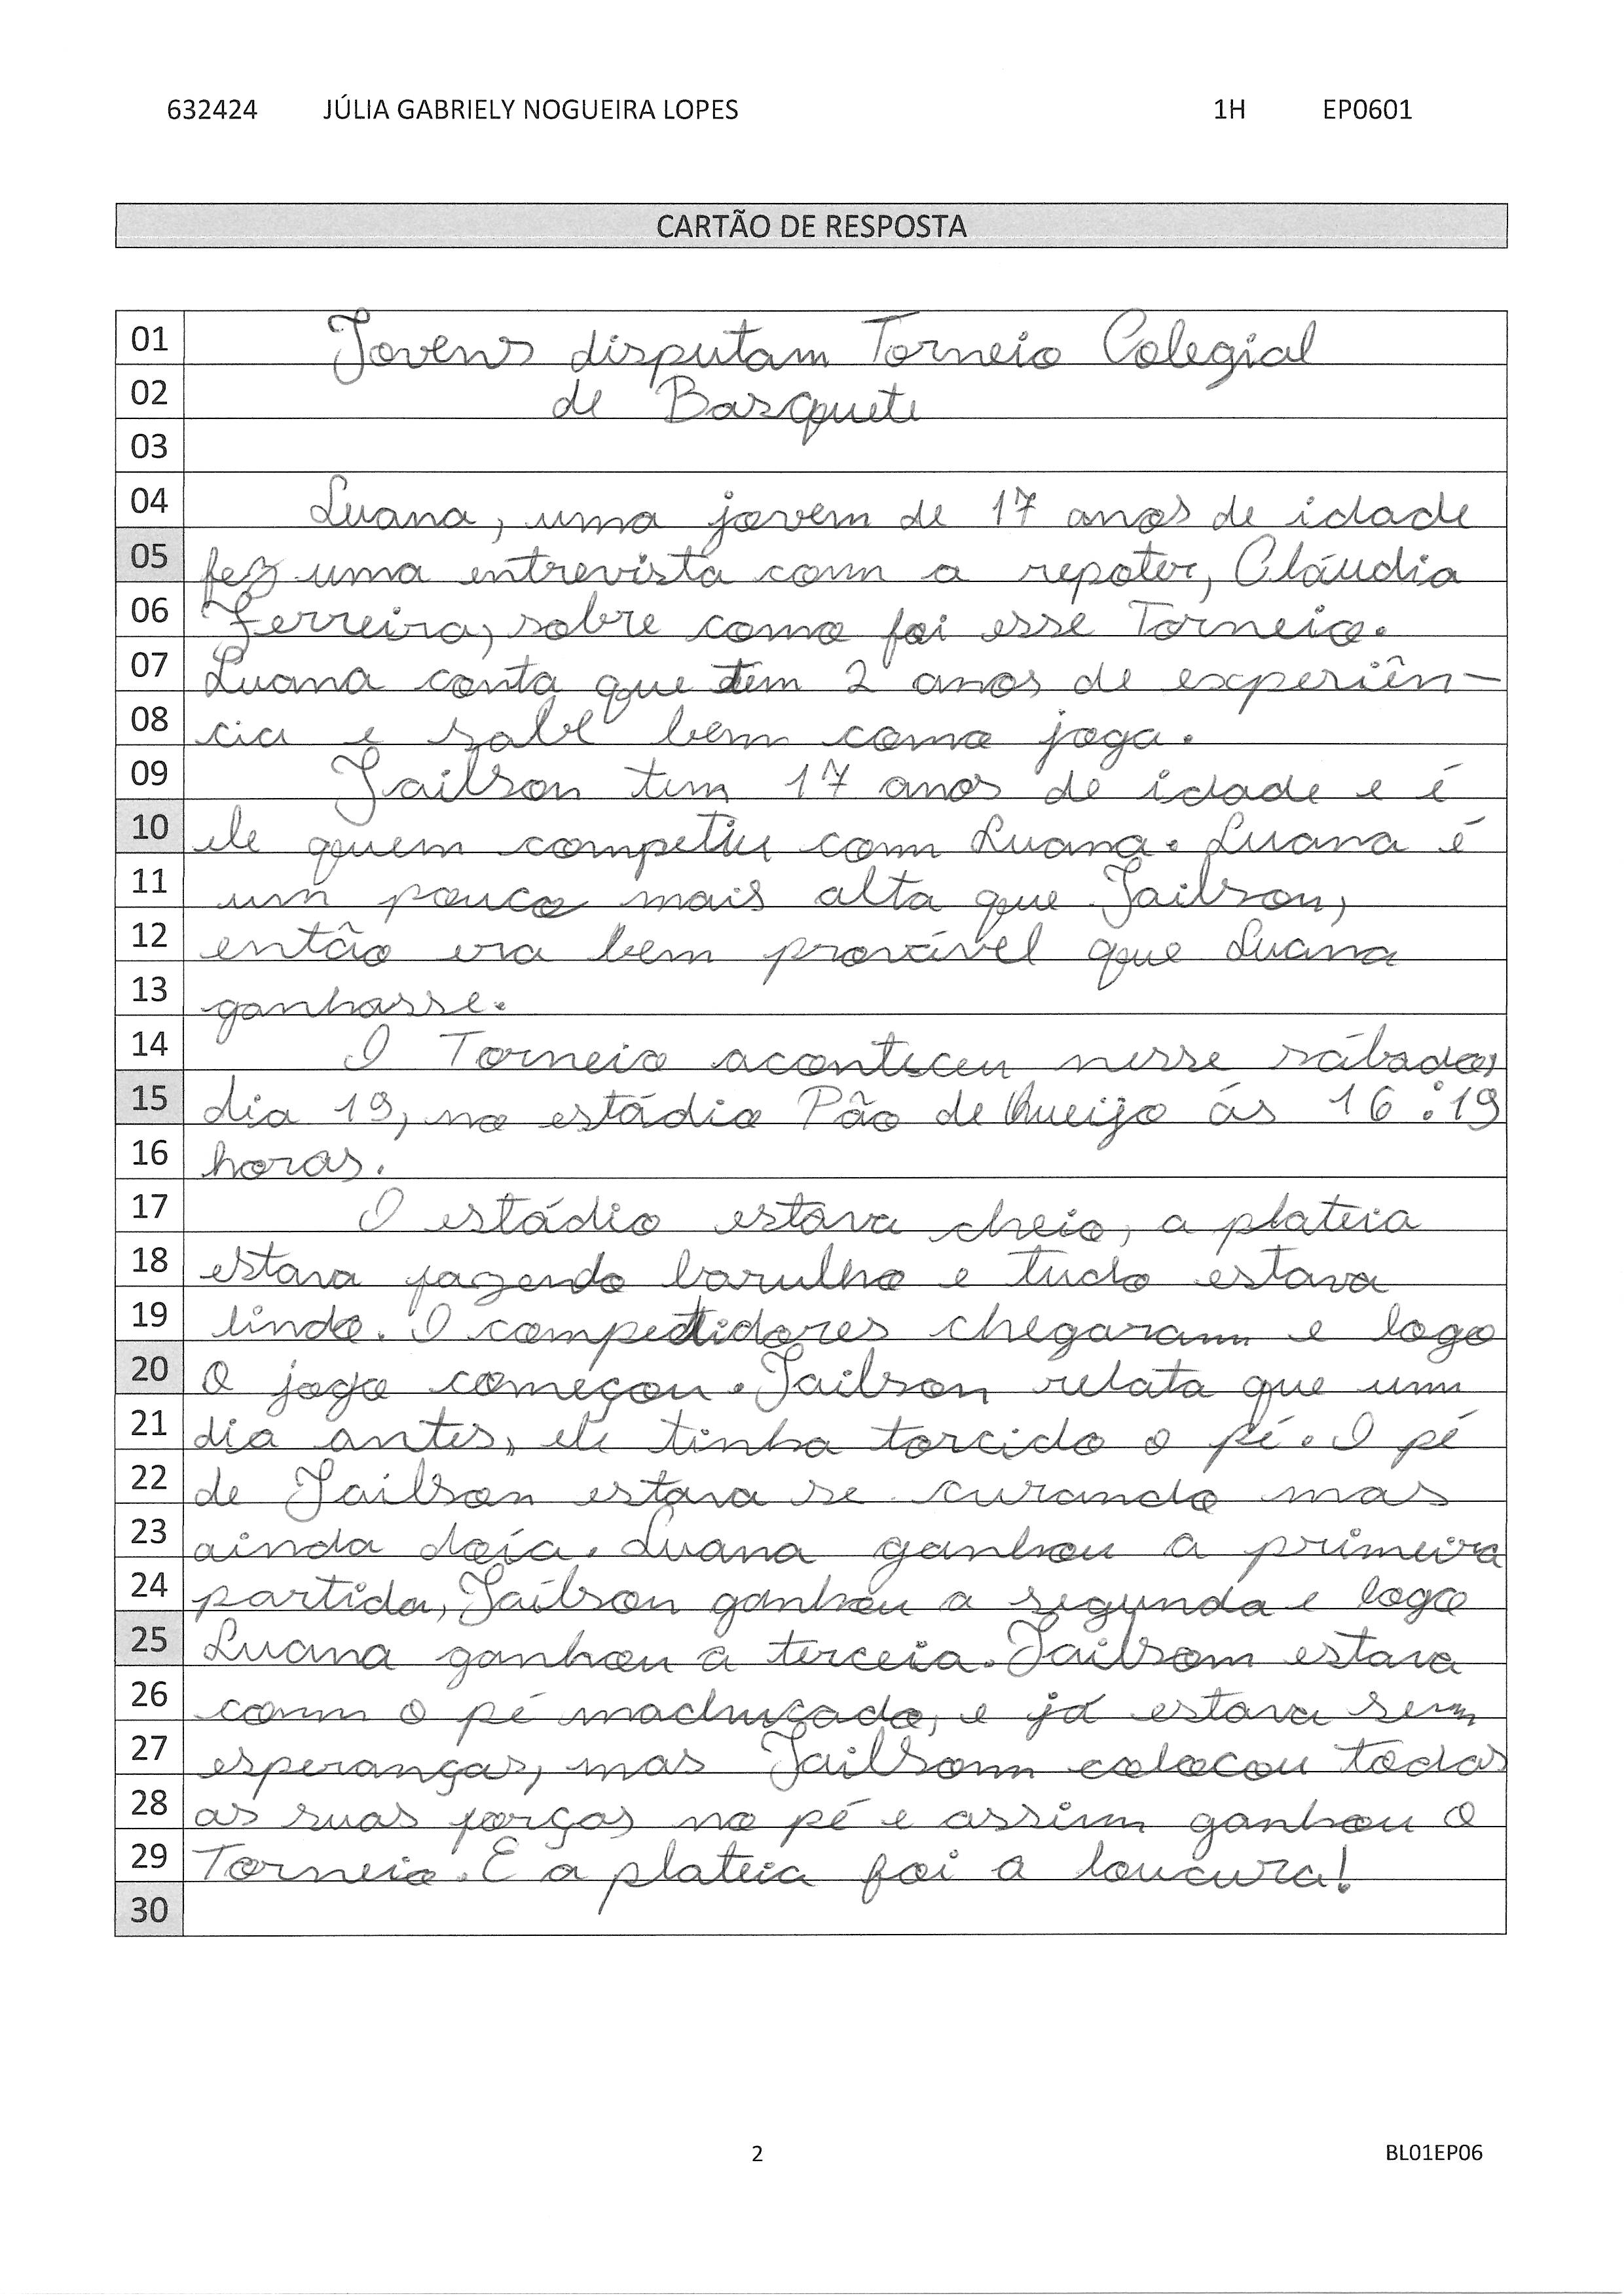 632424 JÚLIA GABRIELY NOGUEIRA LOPES 1H EP0601
CARTÃO DE RESPOSTA
01 Jovens disputam Torneio Colegial
02 de Basquete
03
04 Luana, uma jovem de 17 anos de idade
05 fez uma entrevista com a repoter, Cláudia
06 Ferreira, sobre como foi esse Torneio.
07 Luana conta que tem 2 anos de experiên-
08 cia e sabe bem como joga.
09 Jailson tem 17 anos de idade e é
10 ele quem competiu com Luana. Luana é
11 um pouco mais alta que Jailson,
12 então era bem provável que Luana
13 ganhasse.
14 O Torneio aconteceu nesse sábado,
15 dia 19, no estádio Pão de Queijo ás 16:19
16 horas.
17 O estádio estava cheio, a plateia
18 estava fazendo barulho e tudo estava
19 lindo. O competidores chegaram e logo
20 o jogo começou. Jailson relata que um
21 dia antes, ele tinha torcido o pé. O pé
22 de Jailson estava se curando mas
23 ainda doía. Luana ganhou a primeira
24 partida, Jailson ganhou a segunda e logo
25 Luana ganhou a terceia. Jailsom estava
26 com o pé machucado, e já estava sem
27 esperanças, mas Jailsom colocou todas
28 as suas forças no pé e assim ganhou o
29 Torneio. E a plateia foi a loucura!
30
2 BL01EP06